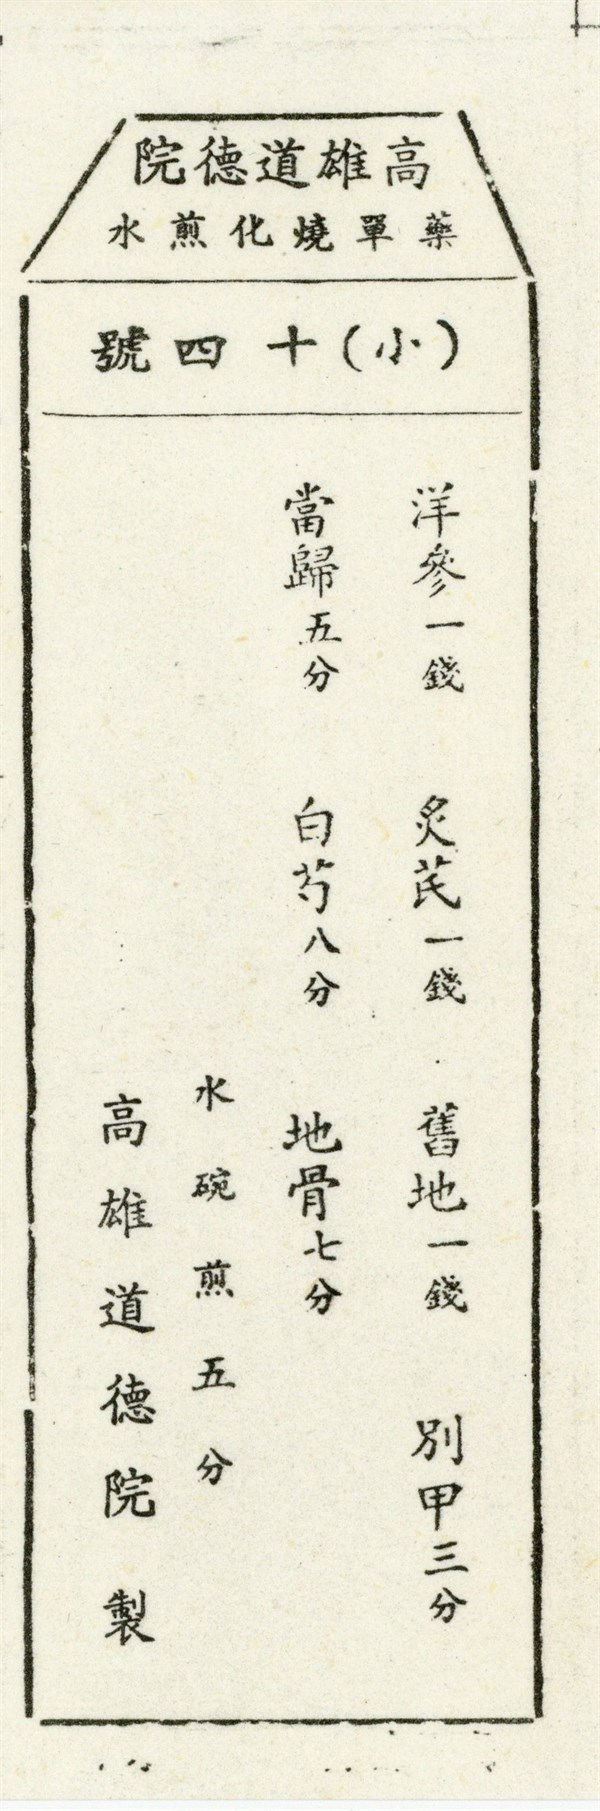 高雄道德院
藥單燒化煎水
(小)十四號
洋參一錢 炙芪一錢 舊地一錢 別甲三分
當歸五分 白芍八分 地骨七分
水碗煎五分
高雄道德院製